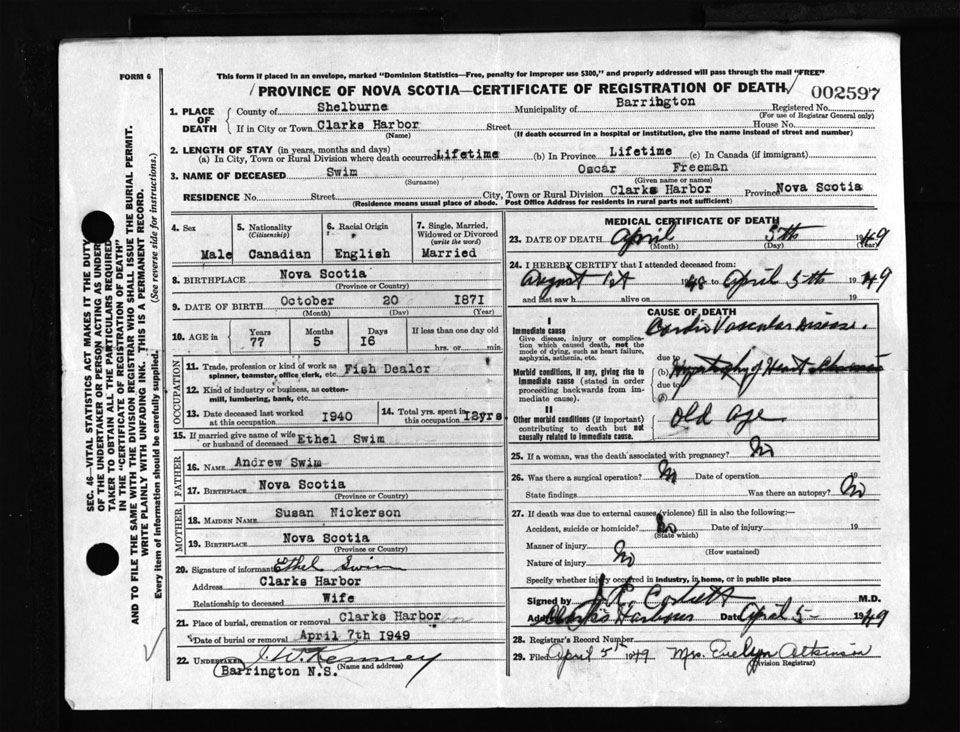 FORM 6
This form if placed in an envelope, marked "Dominion Statistics—Free, penalty for improper use $300," and properly addressed will pass through the mail "FREE"
PROVINCE OF NOVA SCOTIA—CERTIFICATE OF REGISTRATION OF DEATH
002597
SEC. 46—VITAL STATISTICS ACT MAKES IT THE DUTY
OF THE UNDERTAKER OR PERSON ACTING AS UNDER-
TAKER TO OBTAIN ALL THE PARTICULARS REQUIRED
IN THE "CERTIFICATE OF REGISTRATION OF DEATH"
AND TO FILE THE SAME WITH THE DIVISION REGISTRAR WHO SHALL ISSUE THE BURIAL PERMIT.
WRITE PLAINLY WITH UNFADING INK. THIS IS A PERMANENT RECORD.
Every item of information should be carefully supplied. (See reverse side for instructions.)
1. PLACE OF DEATH
County of Shelburne Municipality of Barrington Registered No.
(For use of Registrar General only)
If in City or Town Clarks Harbor Street House No.
(Name) (If death occurred in a hospital or institution, give the name instead of street and number)
2. LENGTH OF STAY (in years, months and days)
(a) In City, Town or Rural Division where death occurred Lifetime (b) In Province Lifetime (c) In Canada (if immigrant)
3. NAME OF DECEASED Swim Oscar Freeman
(Surname) (Given name or names)
RESIDENCE No. Street City, Town or Rural Division Clarks Harbor Province Nova Scotia
(Residence means usual place of abode. Post Office Address for residents in rural parts not sufficient)
4. Sex Male
5. Nationality (Citizenship) Canadian
6. Racial Origin English
7. Single, Married, Widowed or Divorced (write the word) Married
8. BIRTHPLACE Nova Scotia
(Province or Country)
9. DATE OF BIRTH October 20 1871
(Month) (Day) (Year)
10. AGE in Years 77 Months 5 Days 16 If less than one day old hrs. or min.
OCCUPATION
11. Trade, profession or kind of work as spinner, teamster, office clerk, etc. Fish Dealer
12. Kind of industry or business, as cotton-mill, lumbering, bank, etc.
13. Date deceased last worked at this occupation 1940
14. Total yrs. spent in this occupation 18yrs.
15. If married give name of wife or husband of deceased Ethel Swim
FATHER
16. NAME Andrew Swim
17. BIRTHPLACE Nova Scotia
(Province or Country)
MOTHER
18. MAIDEN NAME Susan Nickerson
19. BIRTHPLACE Nova Scotia
(Province or Country)
20. Signature of informant Ethel Swim
Address Clarks Harbor
Relationship to deceased Wife
21. Place of burial, cremation or removal Clarks Harbor
Date of burial or removal April 7th 1949
22. UNDERTAKER J. W. Kenney
(Name and address)
Barrington N.S.
MEDICAL CERTIFICATE OF DEATH
23. DATE OF DEATH April 5th 1949
(Month) (Day) (Year)
24. I HEREBY CERTIFY that I attended deceased from:
August 1st 1948 to April 5th 1949
and last saw h alive on 19
CAUSE OF DEATH
I
Immediate cause
Give disease, injury or complication which caused death, not the mode of dying, such as heart failure, asphyxia, asthenia, etc.
Cardio Vascular Disease.
due to
Morbid conditions, if any, giving rise to immediate cause (stated in order proceeding backwards from immediate cause).
(b) Hypertrophy of Heart Chronic
due to
II
Other morbid conditions (if important) contributing to death but not causally related to immediate cause.
Old Age
25. If a woman, was the death associated with pregnancy? No
26. Was there a surgical operation? No Date of operation 19
State findings Was there an autopsy? No
27. If death was due to external causes (violence) fill in also the following:—
Accident, suicide or homicide? No Date of injury 19
(State which)
Manner of injury
(How sustained)
Nature of injury No
Specify whether injury occurred in industry, in home, or in public place
Signed by M.D.
Address Clark's Harbour Date April 5- 1949
28. Registrar's Record Number
29. Filed April 5th 1949 Mrs. Evelyn Atkinson
(Division Registrar)